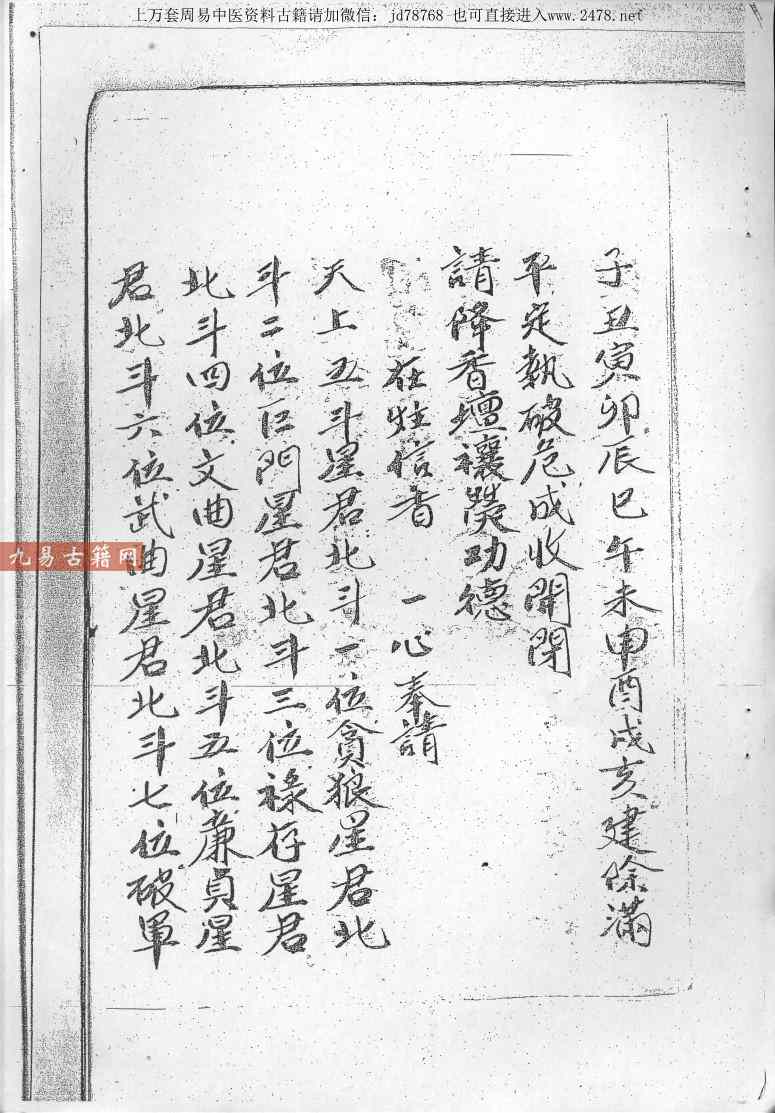 上万套周易中医资料古籍请加微信：jd78768 也可直接进入www.2478.net
子丑寅卯辰巳午未申酉戌亥建除滿
平定執破危成收開閉
請降香壇禳熒功德
在壇信者 一心奉請
天上五斗星君北斗一位貪狼星君北
斗二位巨門星君北斗三位禄存星君
北斗四位文曲星君北斗五位蔗貞星
君北斗六位武曲星君北斗七位破軍
九易古籍网